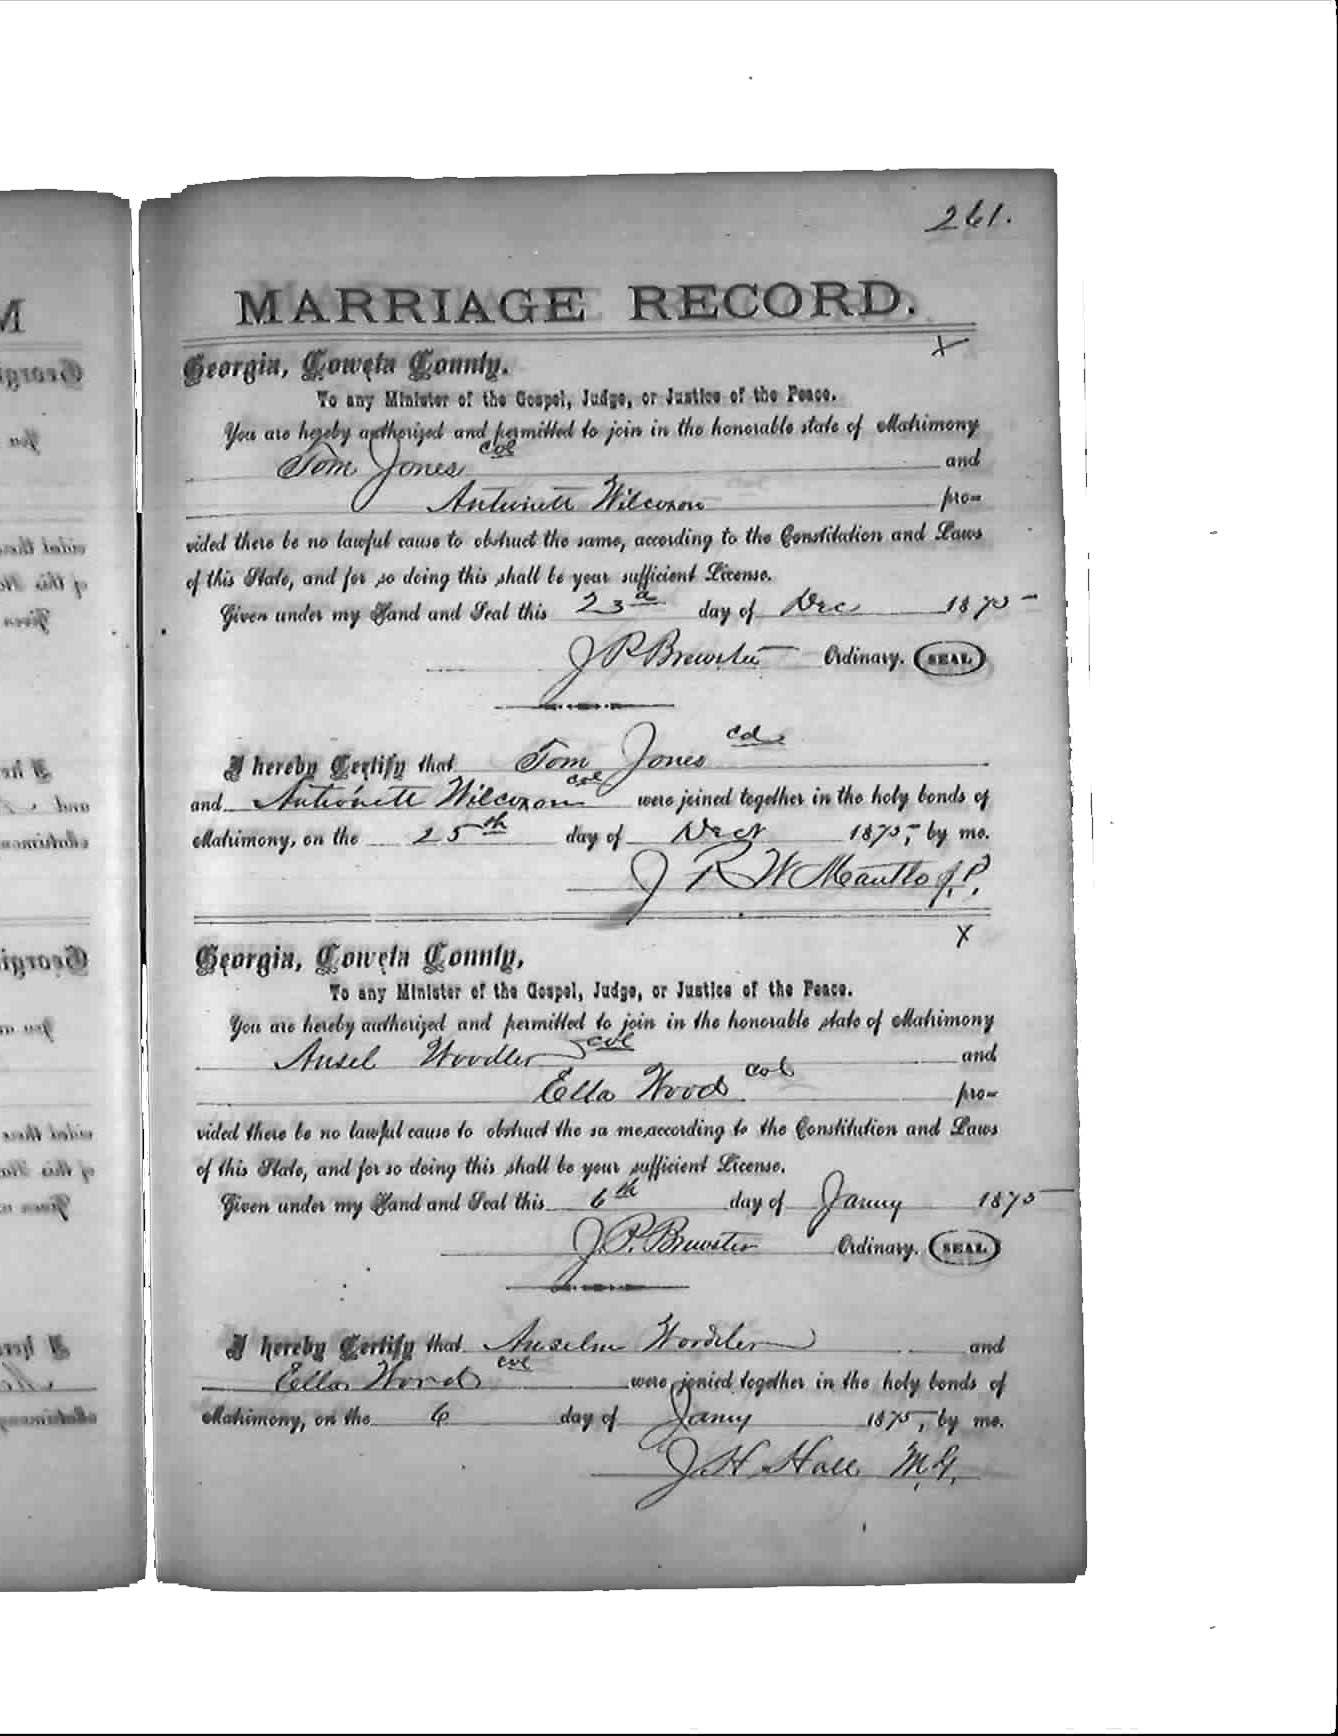 261.
MARRIAGE RECORD.
X
Georgia, Coweta County.
To any Minister of the Gospel, Judge, or Justice of the Peace.
You are hereby authorized and permitted to join in the honorable state of Matrimony
Tom Jones col and
Antionett Wilcoxon pro-
vided there be no lawful cause to obstruct the same, according to the Constitution and Laws
of this State, and for so doing this shall be your sufficient License.
Given under my Hand and Seal this 23d day of Dec 1875
J P Brewster Ordinary. SEAL
I hereby Certify that Tom Jones col
and Antionett Wilcoxon col were joined together in the holy bonds of
Matrimony, on the 25th day of Decr 1875, by me.
J R W J.P.
X
Georgia, Coweta County,
To any Minister of the Gospel, Judge, or Justice of the Peace.
You are hereby authorized and permitted to join in the honorable state of Matrimony
Ansel col and
Ella Wood col pro-
vided there be no lawful cause to obstruct the sa me,according to the Constitution and Laws
of this State, and for so doing this shall be your sufficient License.
Given under my Hand and Seal this 6th day of Janny 1875
J. P. Brewster Ordinary. SEAL
I hereby Certify that Anselm and
Ella Wood col were jonied together in the holy bonds of
Matrimony, on the 6 day of Jany 1875, by me.
J. H. Hall M.G.
M
Georgi
You
vided there
of this Sta
Given
I her
and
Matrimon
Georgi
You ar
vided there
of this Sta
Given u
I here
Matrimony